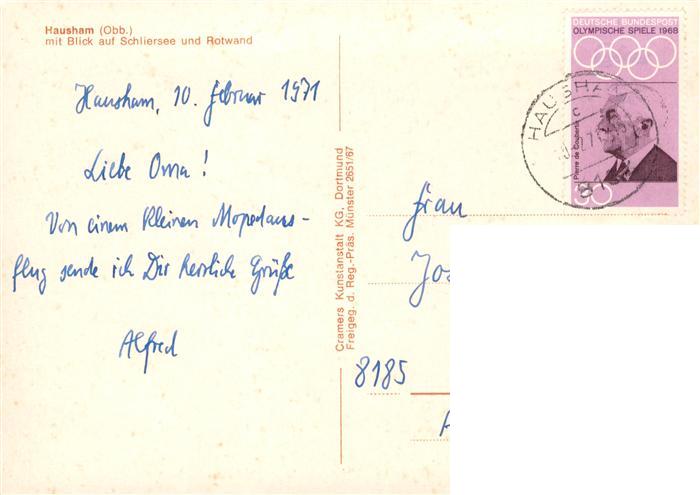 Hausham (Obb.)
mit Blick auf Schliersee und Rotwand
Hausham, 10. Februar 1971
Liebe Oma!
Von einem kleinen Mopedaus-
flug sende ich Dir herzliche Grüße
Alfred
Cramers Kunstanstalt KG, Dortmund
Freigeg. d. Reg.-Präs. Münster 2651/67
DEUTSCHE BUNDESPOST
OLYMPISCHE SPIELE 1968
Pierre de Coubertin
30
HAUSHAM
Frau
Jos
8185